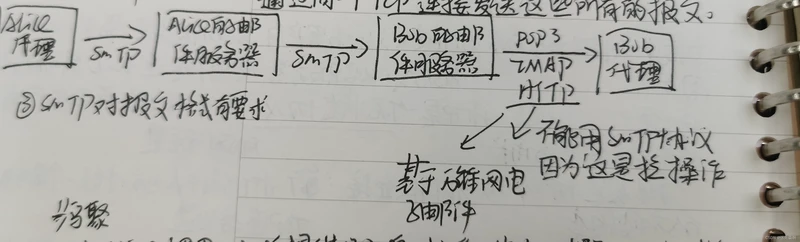 通过同一个TCP连接发送这些所有的报文。
Alice代理 SMTP Alice的邮件服务器 SMTP Bob的邮件服务器 POP3 IMAP HTTP Bob代理
③SMTP对报文格式有要求
不能用SMTP协议
因为这是拉操作
基于万维网电
子邮件
步骤